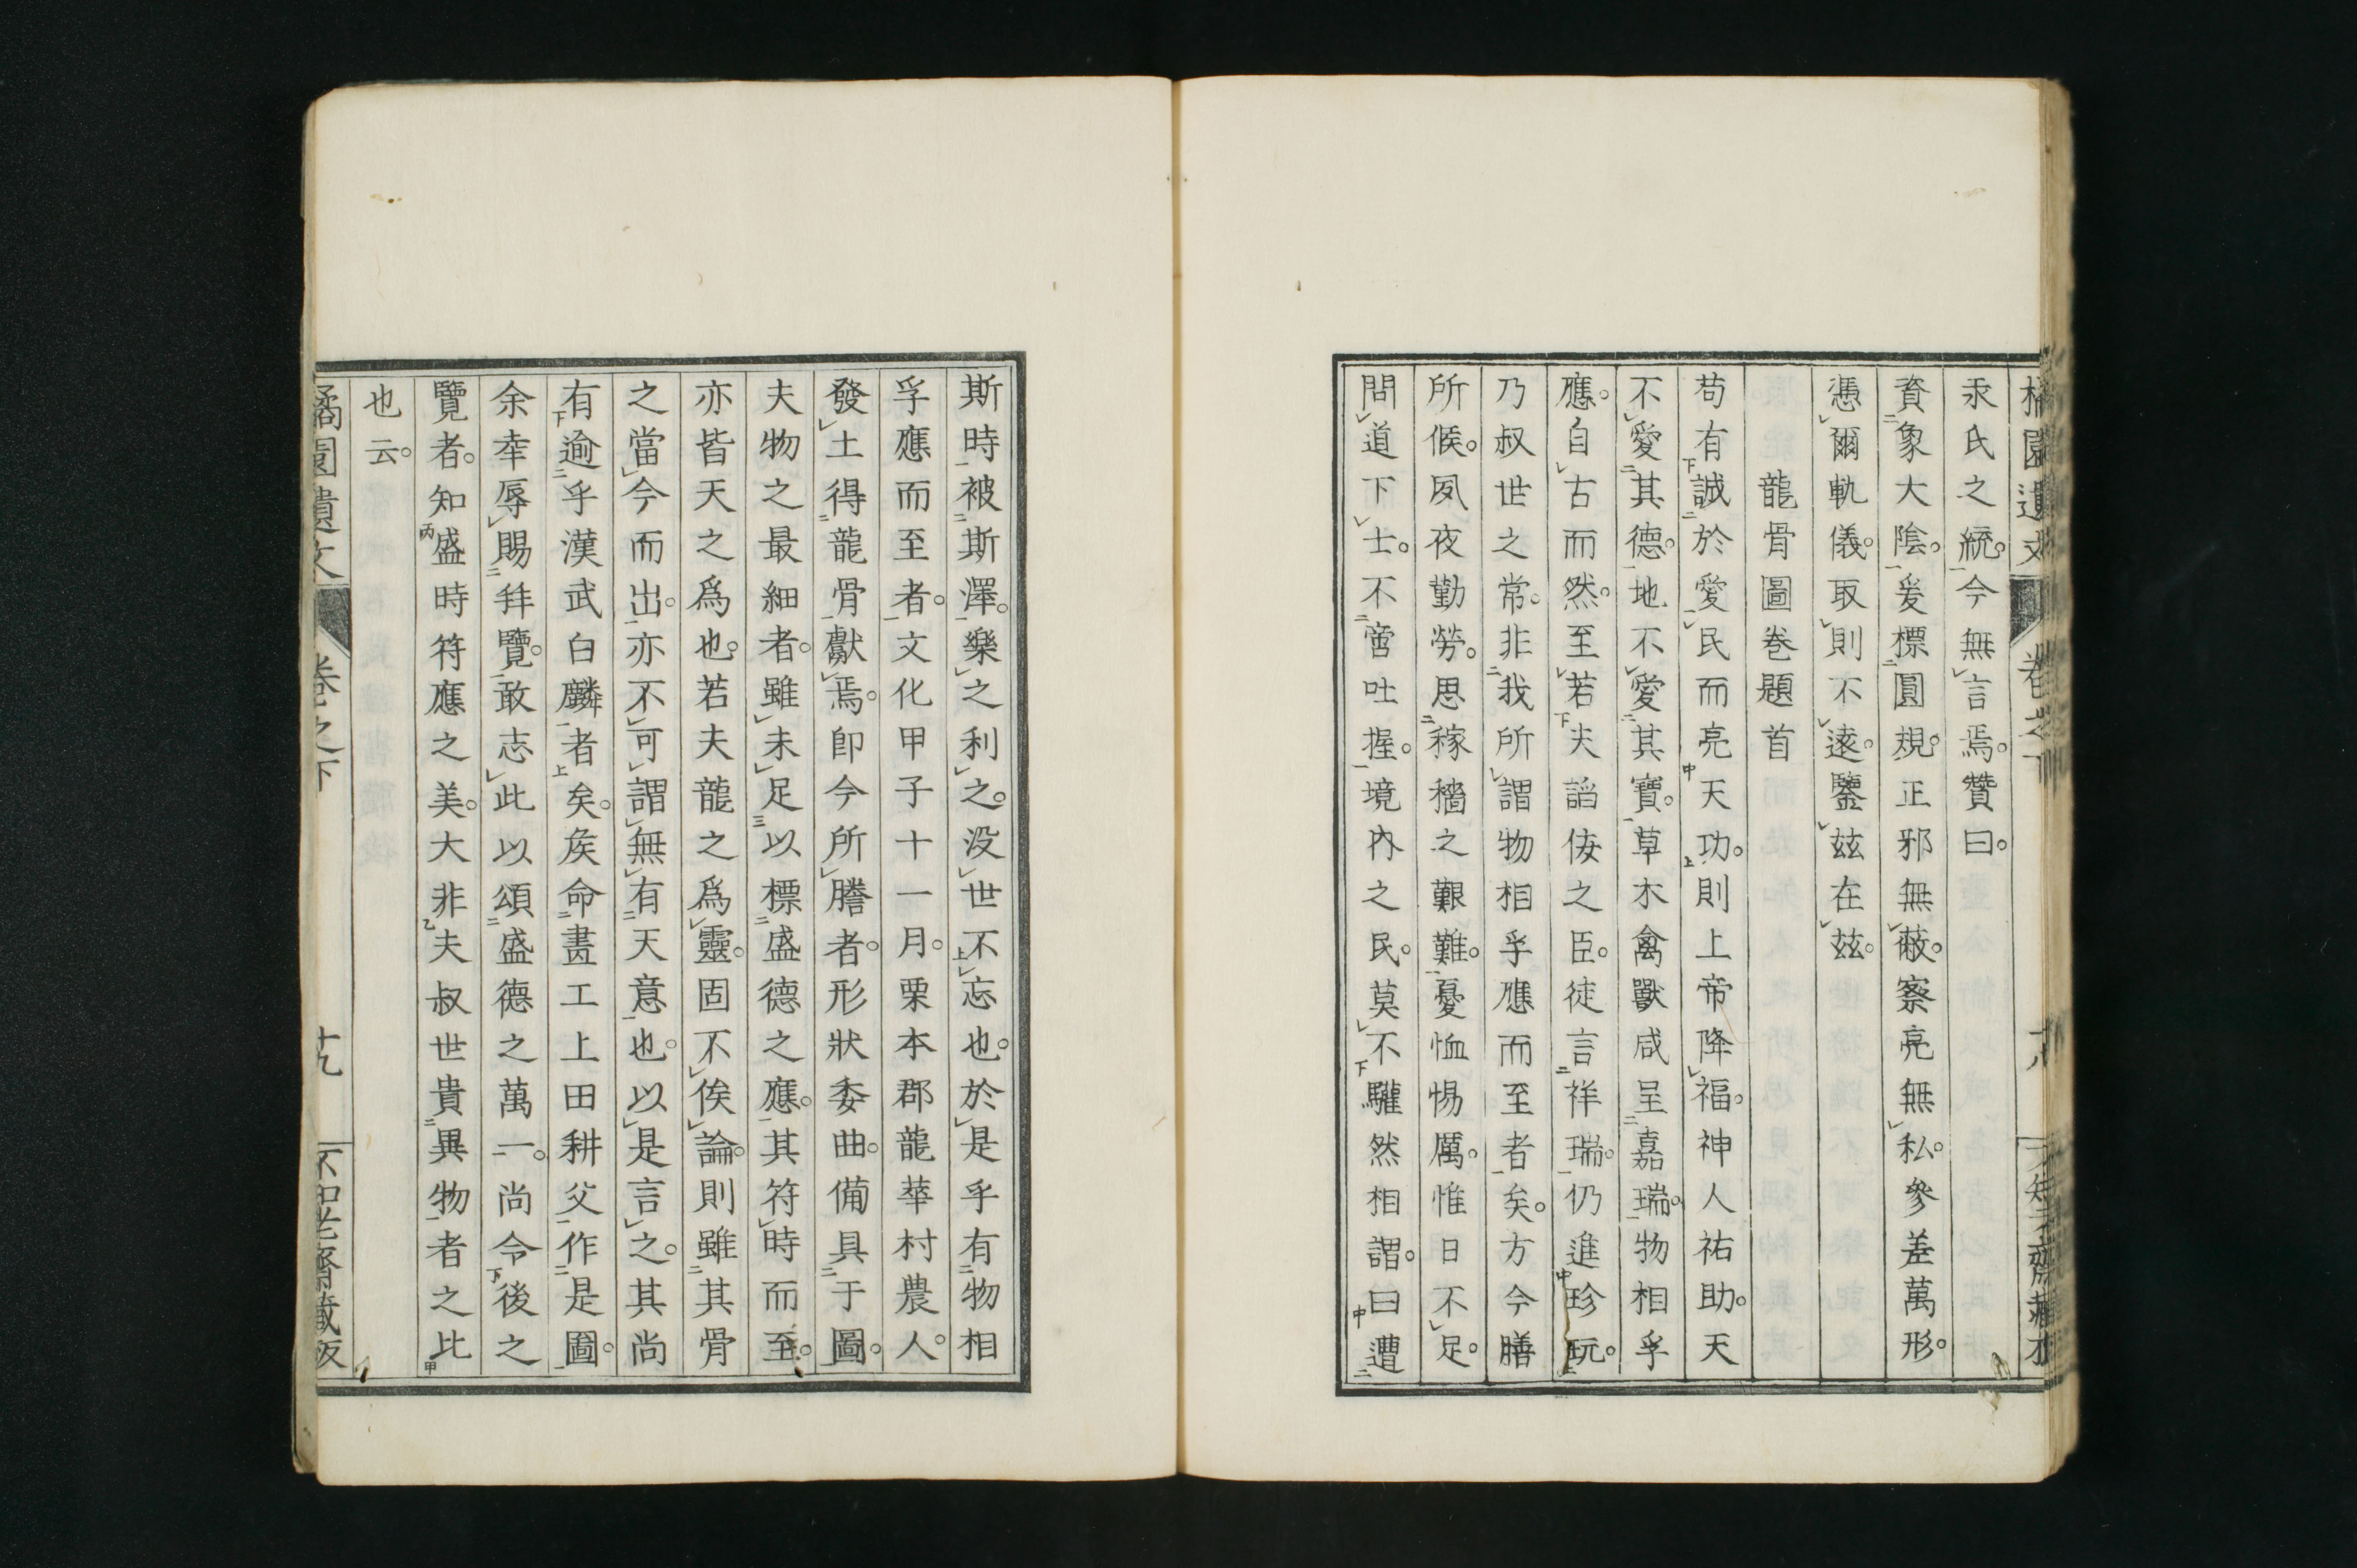 橘園遺文 卷之下 十八
汞氏之統。今無言焉。贊曰。
資象大陰。爰標圓規。正邪無蔽。察亮無私。參差萬形。
憑爾軌儀。取則不遠。鑒茲在茲。
龍骨圖卷題首
苟有誠於愛民而亮天功。則上帝降福。神人祐助。天
不愛其德。地不愛其寶。草木禽獸咸呈嘉瑞。物相孚
應。自古而然。至若夫諂佞之臣。徒言祥瑞。仍進珍玩。
乃叔世之常。非我所謂物相孚應而至者矣。方今膳
所候。夙夜勤勞。思稼穡之艱難。憂恤惕厲。惟日不足。
問道下士。不啻吐握。境內之民。莫不驩然相謂。曰遭
斯時被斯澤。樂之利之。没世不忘也。於是乎有物相
孚應而至者。文化甲子十一月。栗本郡龍華村農人。
發土得龍骨獻焉。卽今所謄者。形狀委曲。備具于圖。
夫物之最細者。雖未足以標盛德之應。其符時而至。
亦皆天之爲也。若夫龍之爲靈。固不俟論。則雖其骨
之當今而出。亦不可謂無有天意也。以是言之。其尚
有逾乎漢武白麟者矣。矦命畫工上田耕父作是圖。
余幸辱賜拜覽。敢志此以頌盛德之萬一。尚令後之
覽者。知盛時符應之美。大非夫叔世貴異物者之比
也云。
橘園遺文 卷之下 十九 不知老齋藏版